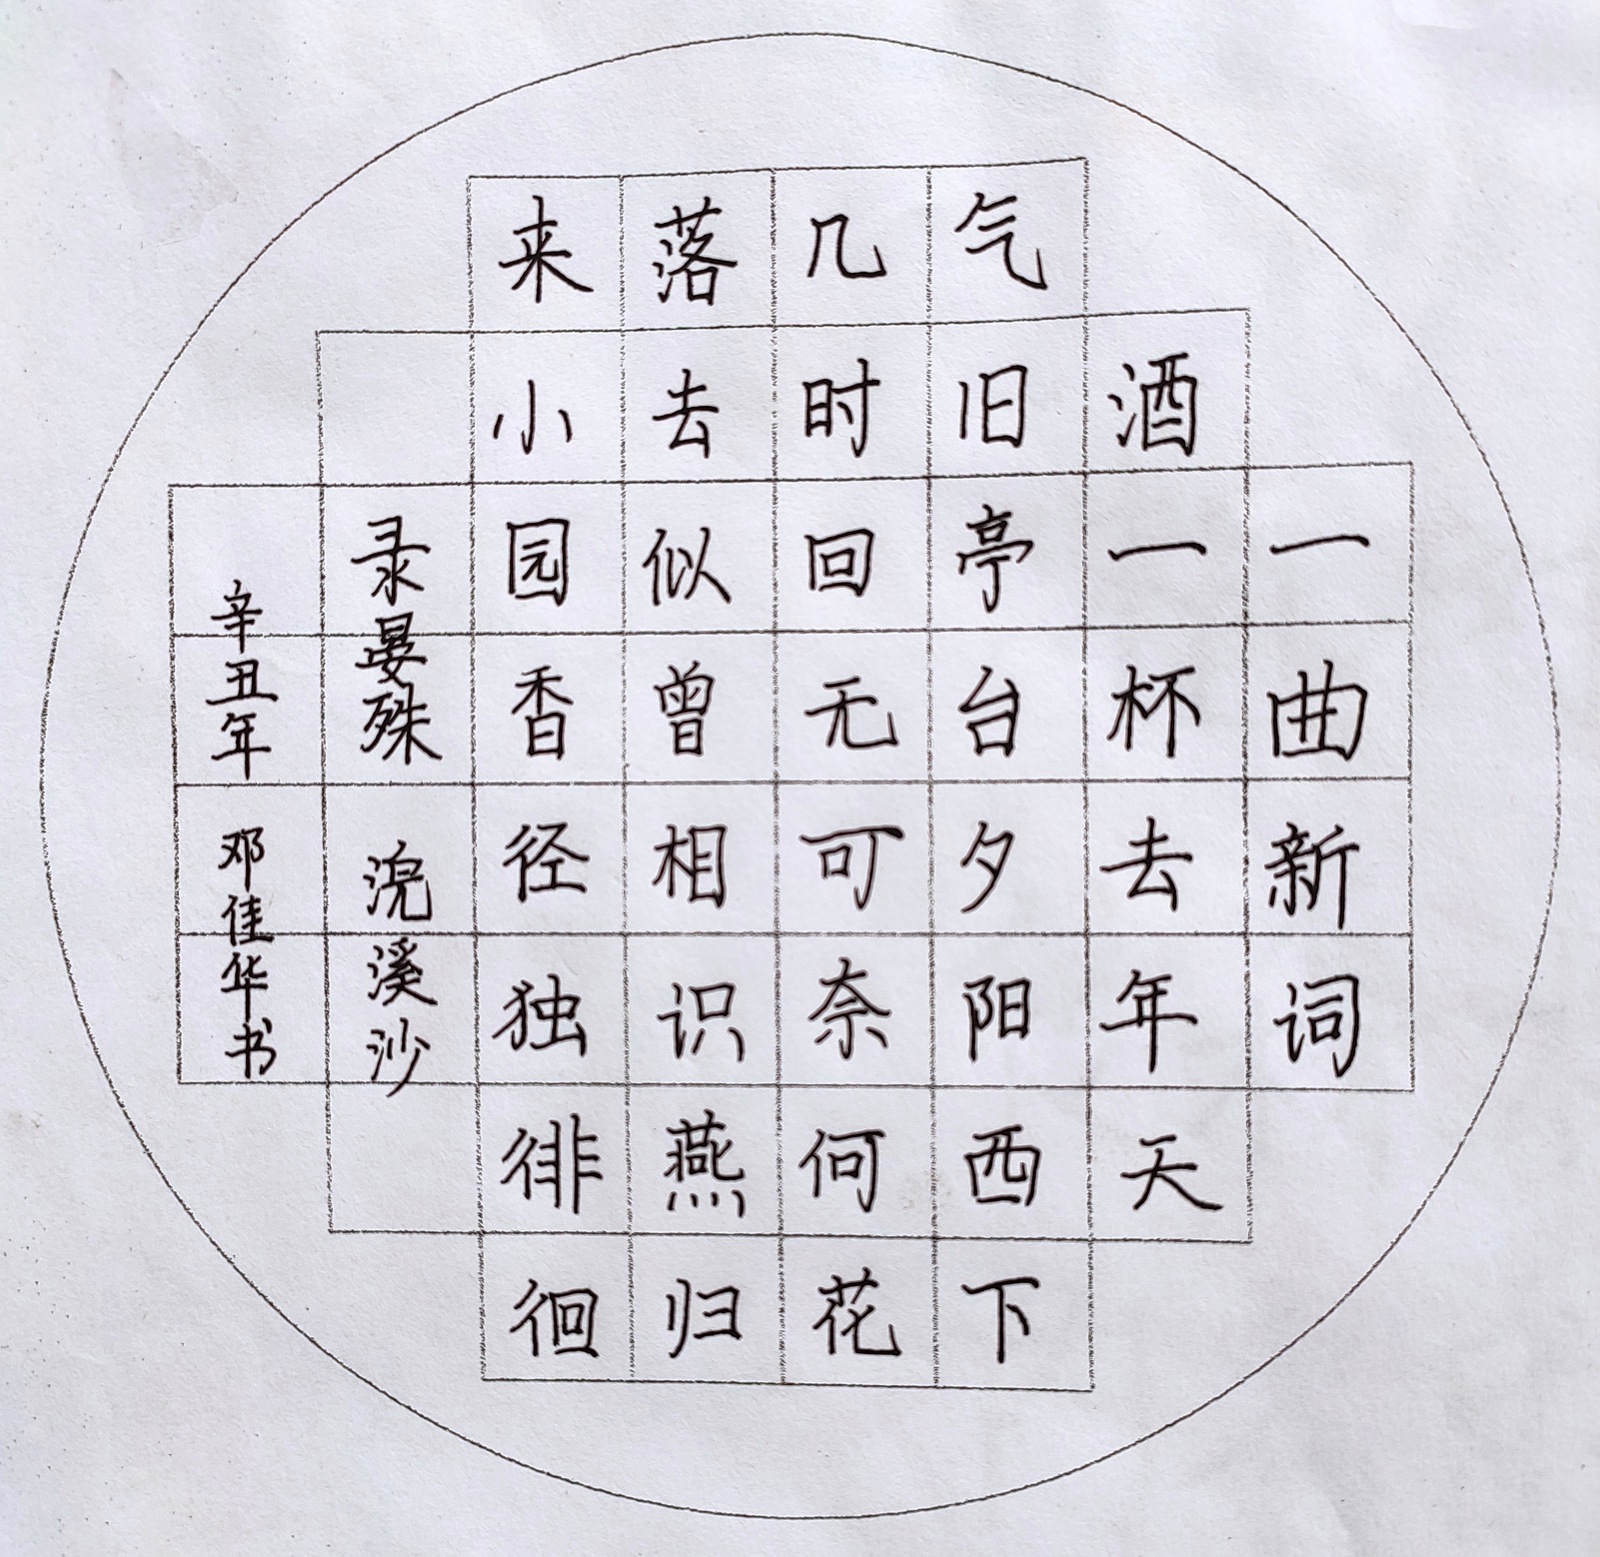 一曲新词
酒一杯去年天
气旧亭台夕阳西下
几时回无可奈何花
落去似曾相识燕归
来小园香径独徘徊
录晏殊浣溪沙
辛丑年邓佳华书